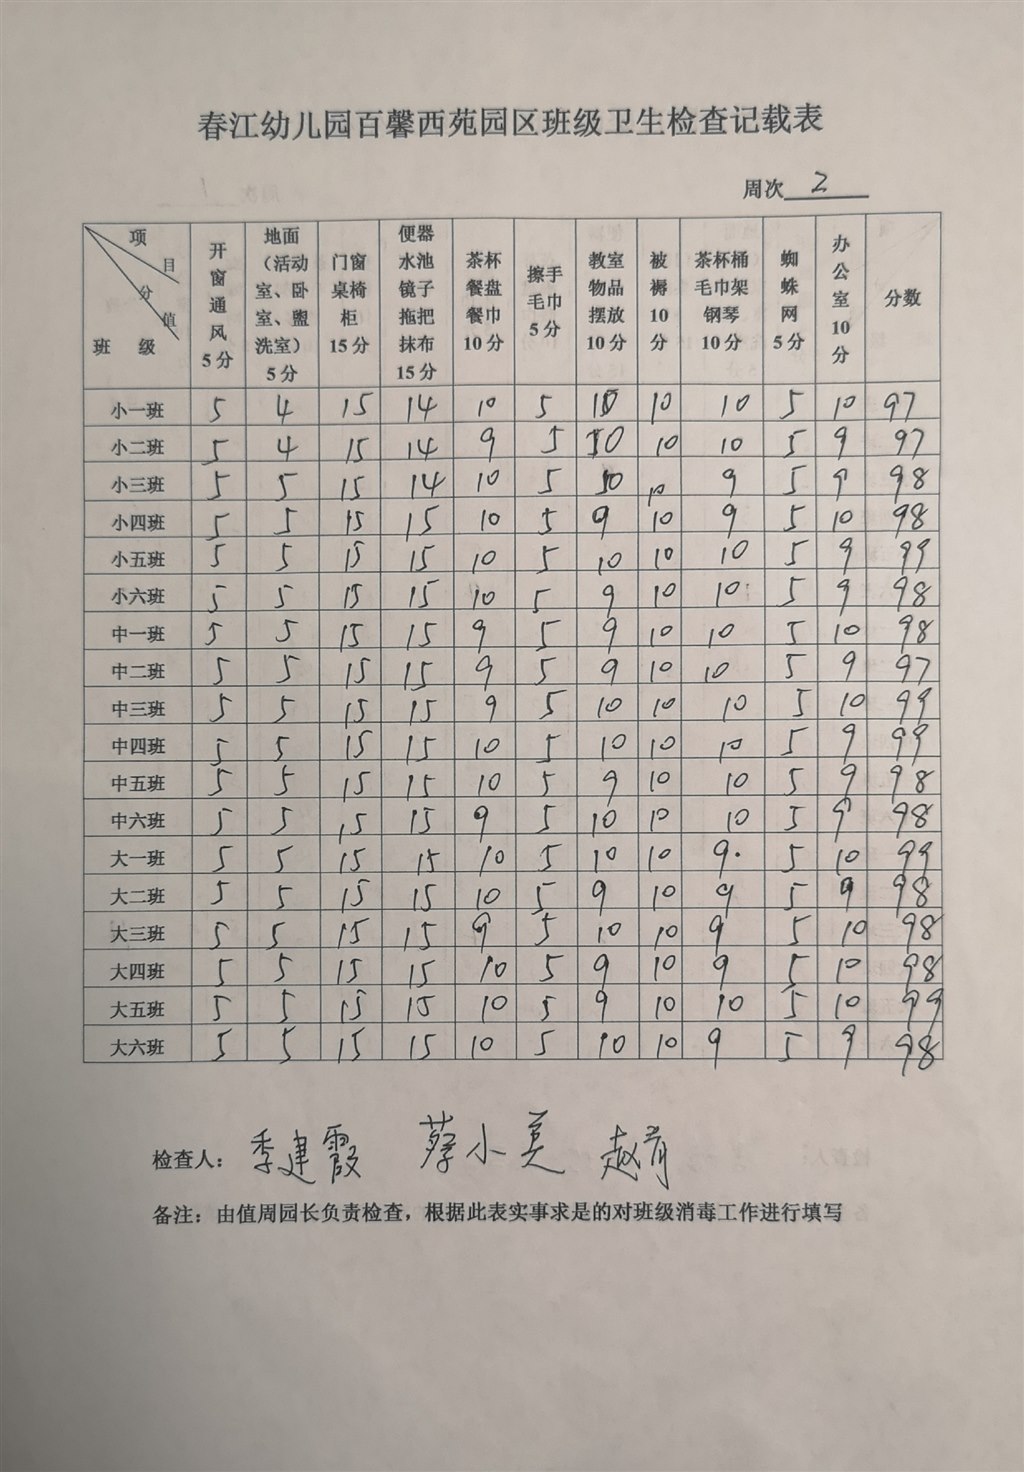 春江幼儿园百馨西苑园区班级卫生检查记载表
周次 2
项目 分值 班级 开窗通风5分 地面（活动室、卧室、盥洗室）5分 门窗桌椅柜15分 便器水池镜子拖把抹布15分 茶杯餐盘餐巾10分 擦手毛巾5分 教室物品摆放10分 被褥10分 茶杯桶毛巾架钢琴10分 蜘蛛网5分 办公室10分 分数
小一班 5 4 15 14 10 5 10 10 10 5 10 97
小二班 5 4 15 14 9 5 10 10 10 5 9 97
小三班 5 5 15 14 10 5 10 10 9 5 9 98
小四班 5 5 15 15 10 5 9 10 9 5 10 98
小五班 5 5 15 15 10 5 10 10 10 5 9 99
小六班 5 5 15 15 10 5 9 10 10 5 9 98
中一班 5 5 15 15 9 5 9 10 10 5 10 98
中二班 5 5 15 15 9 5 9 10 10 5 9 97
中三班 5 5 15 15 9 5 10 10 10 5 10 99
中四班 5 5 15 15 10 5 10 10 10 5 9 99
中五班 5 5 15 15 10 5 9 10 10 5 9 98
中六班 5 5 15 15 9 5 10 10 10 5 9 98
大一班 5 5 15 15 10 5 10 10 9. 5 10 99
大二班 5 5 15 15 10 5 9 10 9 5 9 98
大三班 5 5 15 15 9 5 10 10 9 5 10 98
大四班 5 5 15 15 10 5 9 10 9 5 10 98
大五班 5 5 15 15 10 5 9 10 10 5 10 99
大六班 5 5 15 15 10 5 10 10 9 5 9 98
检查人：季建霞 蔡小美 赵育
备注：由值周园长负责检查，根据此表实事求是的对班级消毒工作进行填写